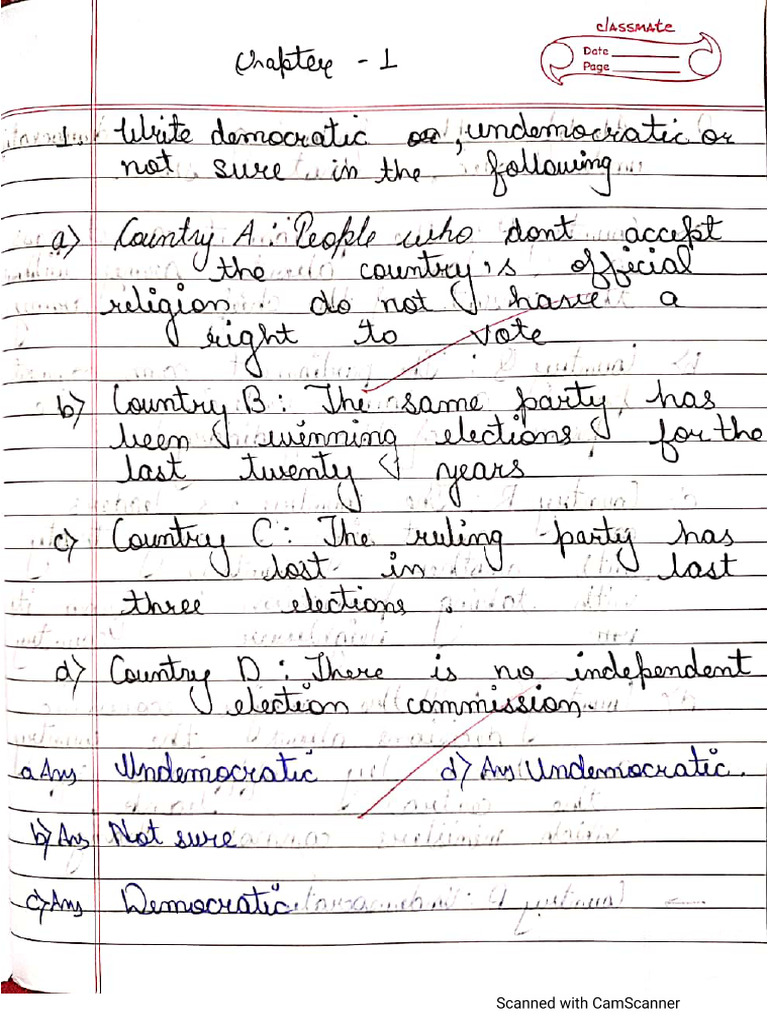 classmate
Date
Page
Chapter - 1
1. Write democratic , undemocratic or
not sure in the following
a) Country A : People who dont accept
the country's official
religion do not have a
right to vote
b) Country B : The same party has
been winning elections for the
last twenty years
c) Country C : The ruling party has
lost in last
three elections .
d) Country D : There is no independent
election commission.
a Ans Undemocratic d) Ans Undemocratic.
b) Ans Not sure
c) Ans Democratic
Scanned with CamScanner